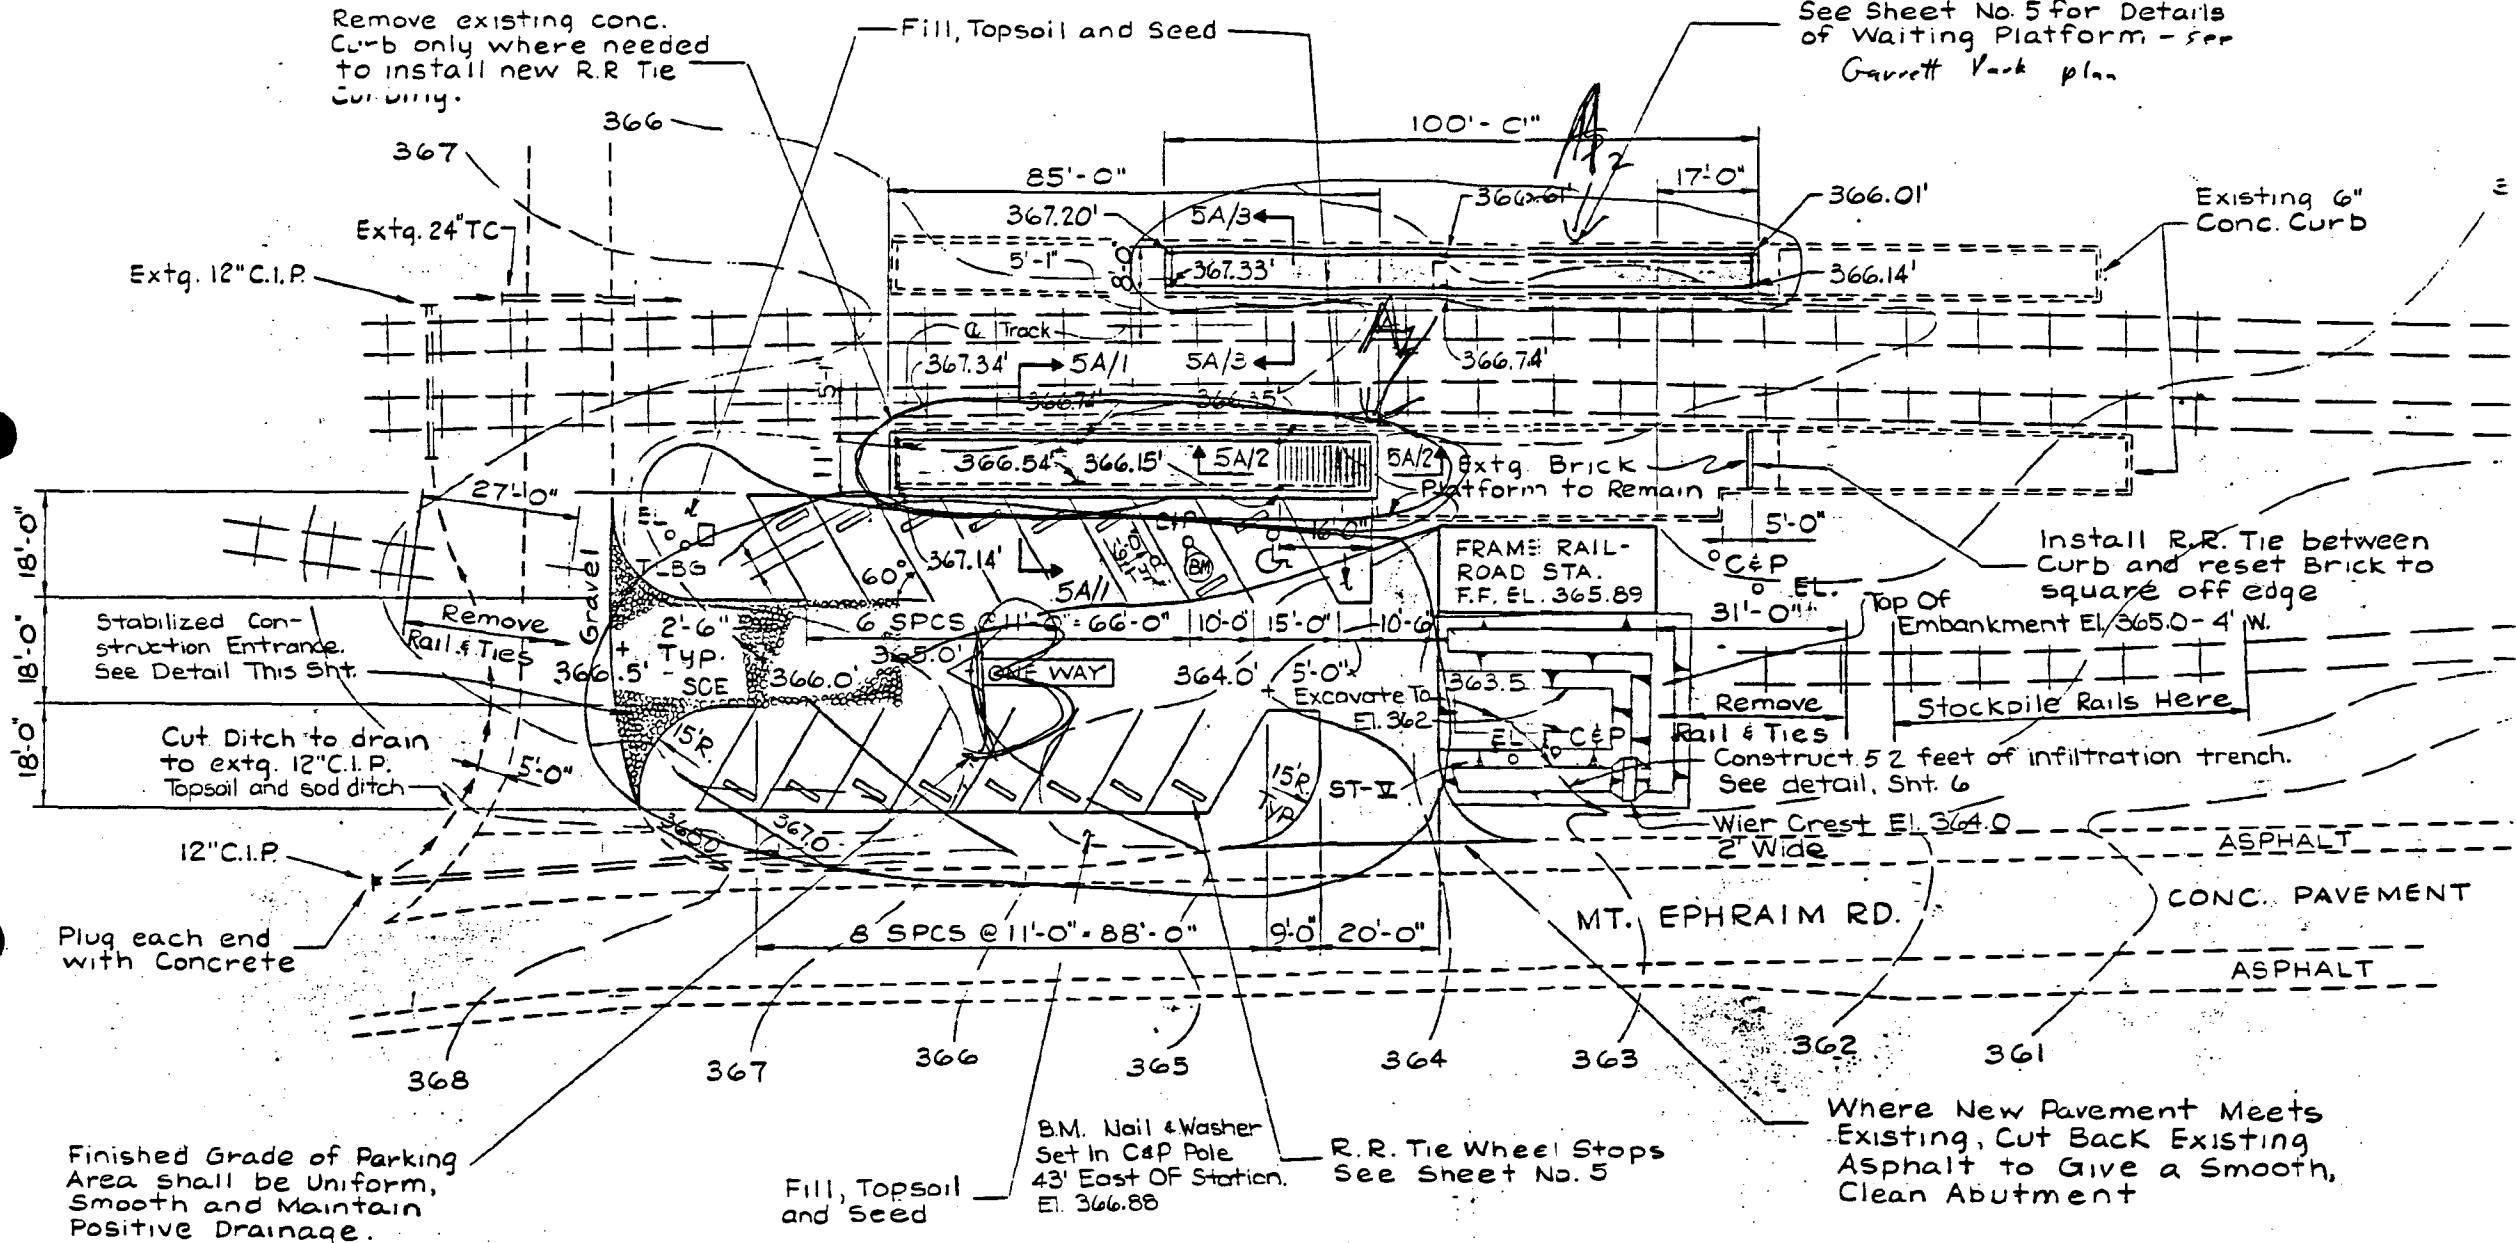 Remove existing conc.
Curb only where needed
to install new R.R Tie
Fill, Topsoil and Seed
See Sheet No. 5 for Details
of Waiting Platform - see
Garrett Park plan
366
367
100'-0"
2
85'-0"
17'-0"
367.20'
5A/3
366.61'
366.01'
Existing 6"
Conc. Curb
Extg. 24" TC
Extg. 12" C.I.P.
5'-1"
8'-0
367.33'
366.14'
℄ Track
367.34'
5A/1
5A/3
366.74'
366.54'
366.15'
5A/2
5A/2
Extg. Brick
Platform to Remain
27'-0"
18'-0"
18'-0"
18'-0"
EL
C&P
16'-0"
5'-0"
Gravel
T-BG
60°
367.14'
16'-0"
Typ.
BM
5A/1
FRAME RAIL-
ROAD STA.
F.F. EL. 365.89
C&P
EL.
31'-0"
Install R.R. Tie between
Curb and reset Brick to
square off edge
Top Of
Embankment El. 365.0 - 4' W.
Stabilized Con-
struction Entrance.
See Detail This Sht.
Remove
Rail & Ties
366.5'
2'-6"
Typ.
SCE
366.0'
6 SPCS @ 11'-0" = 66'-0"
10'-0
15'-0"
10'-6
365.0'
ONE WAY
364.0'
5'-0"
Excavate To
El. 362
363.5
Remove
Rail & Ties
Stockpile Rails Here
Cut Ditch to drain
to extg. 12" C.I.P.
Topsoil and sod ditch
5'-0"
15'R
15'R
TYP.
ST-V
EL
C&P
Construct 52 feet of infiltration trench.
See detail, Sht. 6
Wier Crest El. 364.0
2' Wide
367.0
12" C.I.P.
ASPHALT
CONC. PAVEMENT
MT. EPHRAIM RD.
ASPHALT
Plug each end
with Concrete
8 SPCS @ 11'-0" = 88'-0"
9'-0"
20'-0"
368
367
366
365
364
363
362
361
Finished Grade of Parking
Area shall be Uniform,
Smooth and Maintain
Positive Drainage.
Fill, Topsoil
and Seed
B.M. Nail & Washer
Set In C&P Pole
43' East OF Station.
El. 366.88
R.R. Tie Wheel Stops
See Sheet No. 5
Where New Pavement Meets
Existing, Cut Back Existing
Asphalt to Give a Smooth,
Clean Abutment